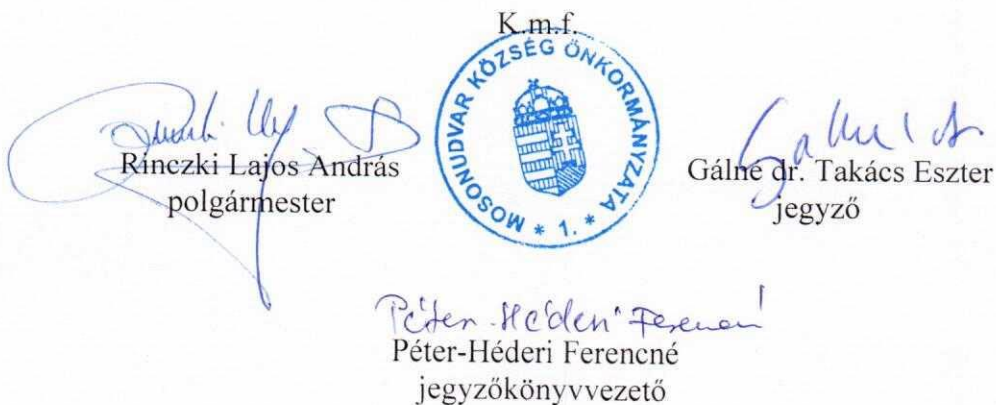 K.m.f.
MOSONUDVAR KÖZSÉG ÖNKORMÁNYZATA * 1. *
Rinczki Lajos András
polgármester
Gálné dr. Takács Eszter
jegyző
Péter-Héderi Ferencné
Péter-Héderi Ferencné
jegyzőkönyvvezető